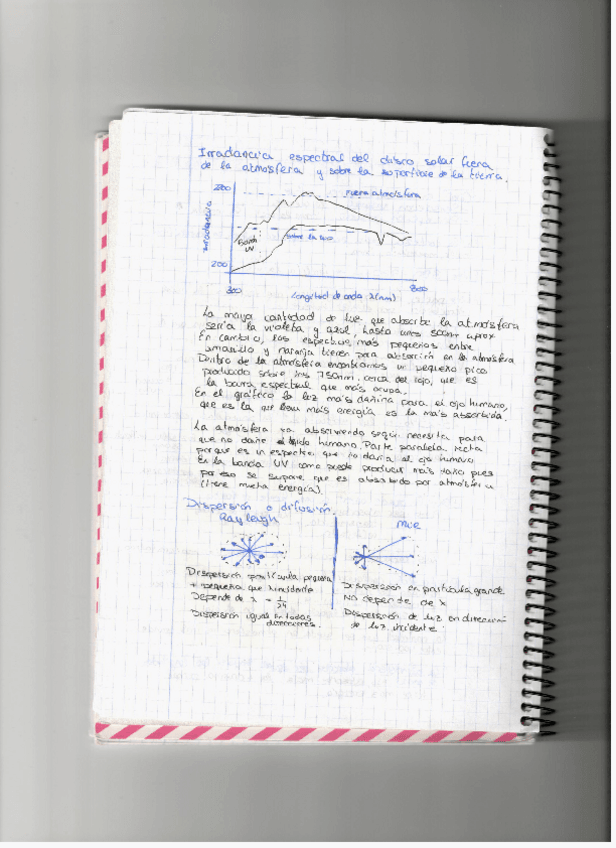 Irradancia espectral del disco solar fuera
de la atmósfera y sobre la superficie de la tierra.
fuera atmósfera
irradancia
Banda
UV
200
300
800
Longitud de onda λ(nm)
La mayor cantidad de luz que absorbe la atmósfera
sería la violeta y azul, hasta unos 500nm aprox
En cambio, los espectros más pequeños entre
amarillo y naranja tienen para absorción en la atmósfera
Dentro de la atmósfera encontramos un pequeño pico
producido sobre los 750nm, cerca del rojo, que es
la banda espectral que más ocupa.
En el gráfico la luz más dañina para el ojo humano,
que es la que lleva más energía es la más absorbida.
La atmósfera va absorviendo según necesita para
que no dañe humano. Parte paralela recta
porque es un espectro que no daría al ojo humano
En la banda UV como puede producir más daño pues
por eso se supone que es absorbido por atmósfera
(tiene mucha energía).
Dispersión o difusión.
Rayleigh
Mie
Dispersión partícula pequeña
+ pequeña que λ incidente
Depende de λ = 1/λ4
Dispersión igual en todas
direcciones.
Dispersión en partícula grande
No depende de λ
Dispersión de luz en dirección
de luz incidente.